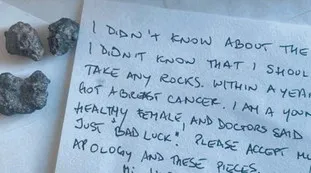 I DIDN'T KNOW ABOUT THE
I DIDN'T KNOW THAT I SHOUL
TAKE ANY ROCKS. WITHIN A YEA
GOT A BREAST CANCER. I AM A YOUN
HEALTHY FEMALE, AND DOCTORS SAID
JUST "BAD LUCK". PLEASE ACCEPT M
APOLOGY AND THESE PIECES.